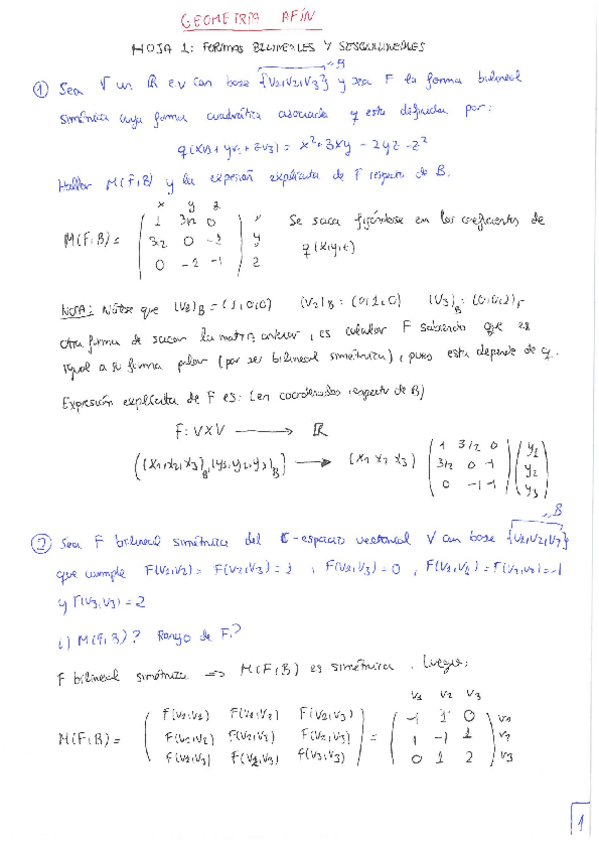 GEOMETRÍA AFÍN
HOJA 1: FORMAS BILINEALES Y SESQUILINEALES
B
① Sea V un ℝ e.v con base {V1,V2,V3} y sea F la forma bilineal
simétrica cuya forma cuadrática asociada q esta definida por:
q(xv1 + yv2 + zv3) = x² + 3xy - 2yz - z²
Hallar M(F,B) y la expresión explicita de F respecto de B.
x y z
M(F,B) = ( 1 3/2 0 ) x Se saca fijándose en los coeficientes de
( 3/2 0 -1 ) y q(x,y,z)
( 0 -1 -1 ) z
NOTA: Nótese que (V1)B = (1,0,0) (V2)B = (0,1,0) (V3)B = (0,0,1).
Otra forma de sacar la matriz anterior, es calcular F sabiendo que es
igual a su forma polar (por ser bilineal simétrica), pues esta depende de q.
Expresión explícita de F es: (en coordenadas respecto de B)
F: V×V → ℝ
((x1,x2,x3)B, (y1,y2,y3)B) → (x1 x2 x3) ( 1 3/2 0 ) ( y1 )
( 3/2 0 -1 ) ( y2 )
( 0 -1 -1 ) ( y3 )
B
② Sea F bilineal simétrica del ℂ-espacio vectorial V con base {V1,V2,V3}
que cumple F(V1,V2) = F(V2,V3) = 1, F(V1,V3) = 0, F(V1,V1) = F(V2,V2) = -1
y F(V3,V3) = 2
i) M(F,B)? Rango de F?
F bilineal simétrica ⇒ M(F,B) es simétrica. Luego:
V1 V2 V3
M(F,B) = ( F(V1,V1) F(V1,V2) F(V1,V3) ) = ( -1 1 0 ) V1
( F(V1,V2) F(V2,V2) F(V2,V3) ) ( 1 -1 1 ) V2
( F(V1,V3) F(V2,V3) F(V3,V3) ) ( 0 1 2 ) V3
1